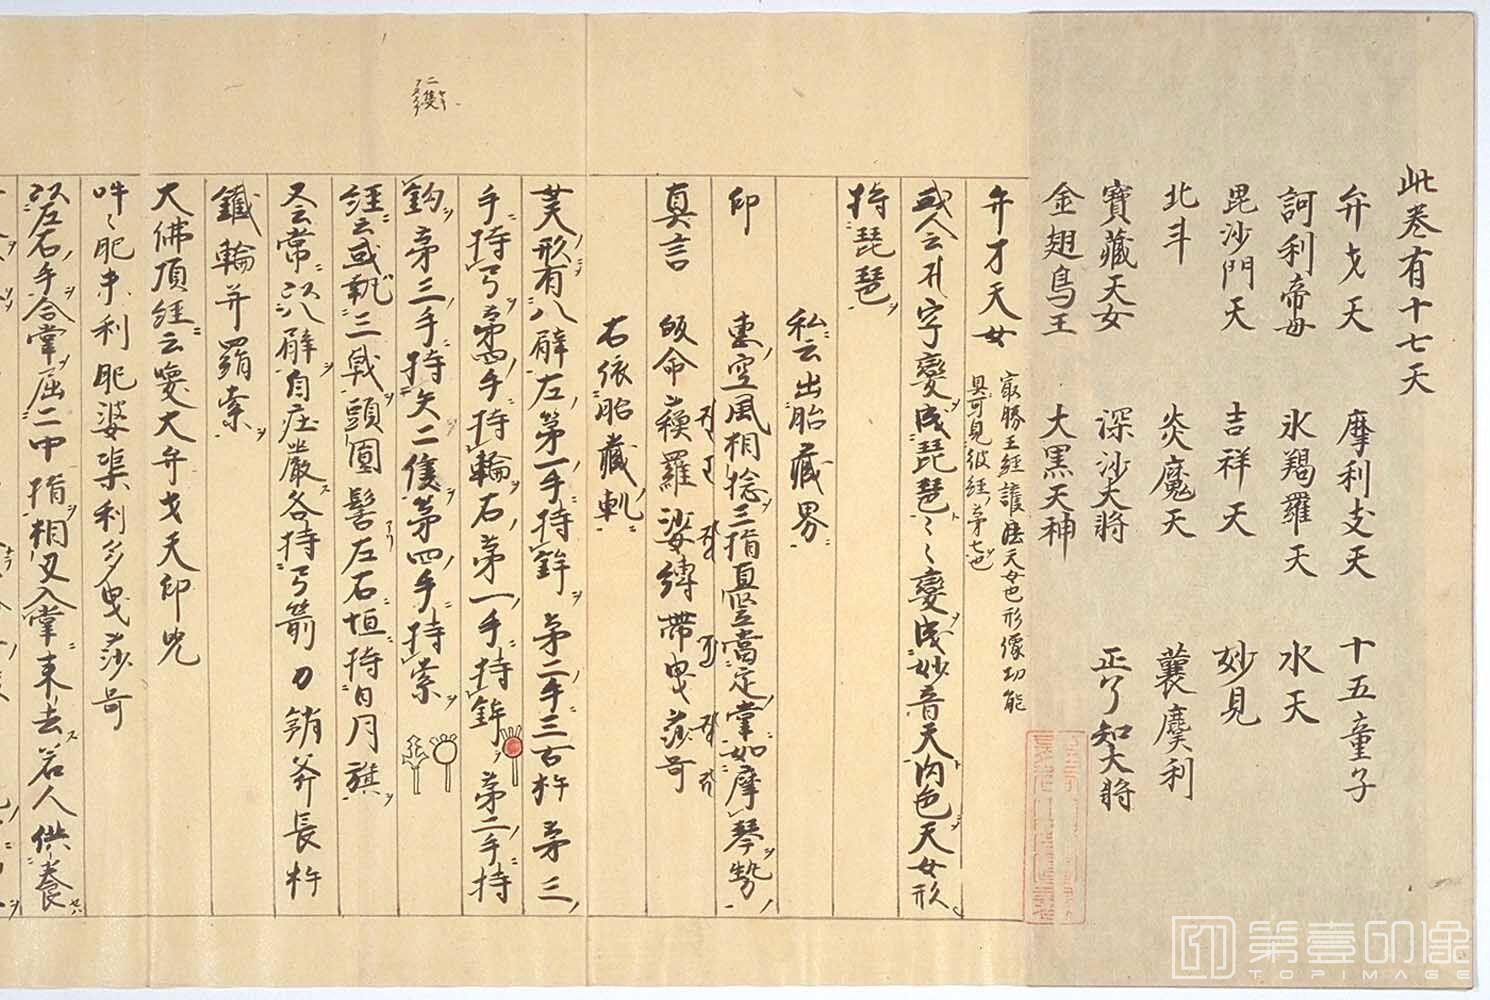 此巻有十七天
弁才天　摩利支天　十五童子
訶利帝母　氷羯羅天　水天
毘沙門天　吉祥天　妙見
北斗　炎魔天　蘘麌利
寶藏天女　深沙大将　正了知大将
金翅鳥王　大黒天神
弁才天女
最勝王経護法天女也形像功能
具可見彼経第七也
或人云 字變成琵琶〻〻變成妙音天肉色天女形
持琵琶
私云出胎藏界
印　東空風相捻三指直竪當定掌如摩琴勢
真言　皈命 蘓羅娑縛帯曳莎呵
右依胎藏軌
美形有八臂左第一手持鉾第二手三古杵第三
手持弓第四手持輪右第一手持鉾第二手持
鈎第三手持矢二隻第四手持索
二隻
経云或執三戟頭圓髻左右恒持日月旗
又云常以八臂自庄嚴各持弓箭刀鉾斧長杵
鐵輪并羂索
大佛頂経云 大弁才天印咒
吽〻肥 利肥婆 利多曳莎呵
以左右手合掌屈二中指相叉入掌末去若人供養
第壹印像
TOPIMAGE